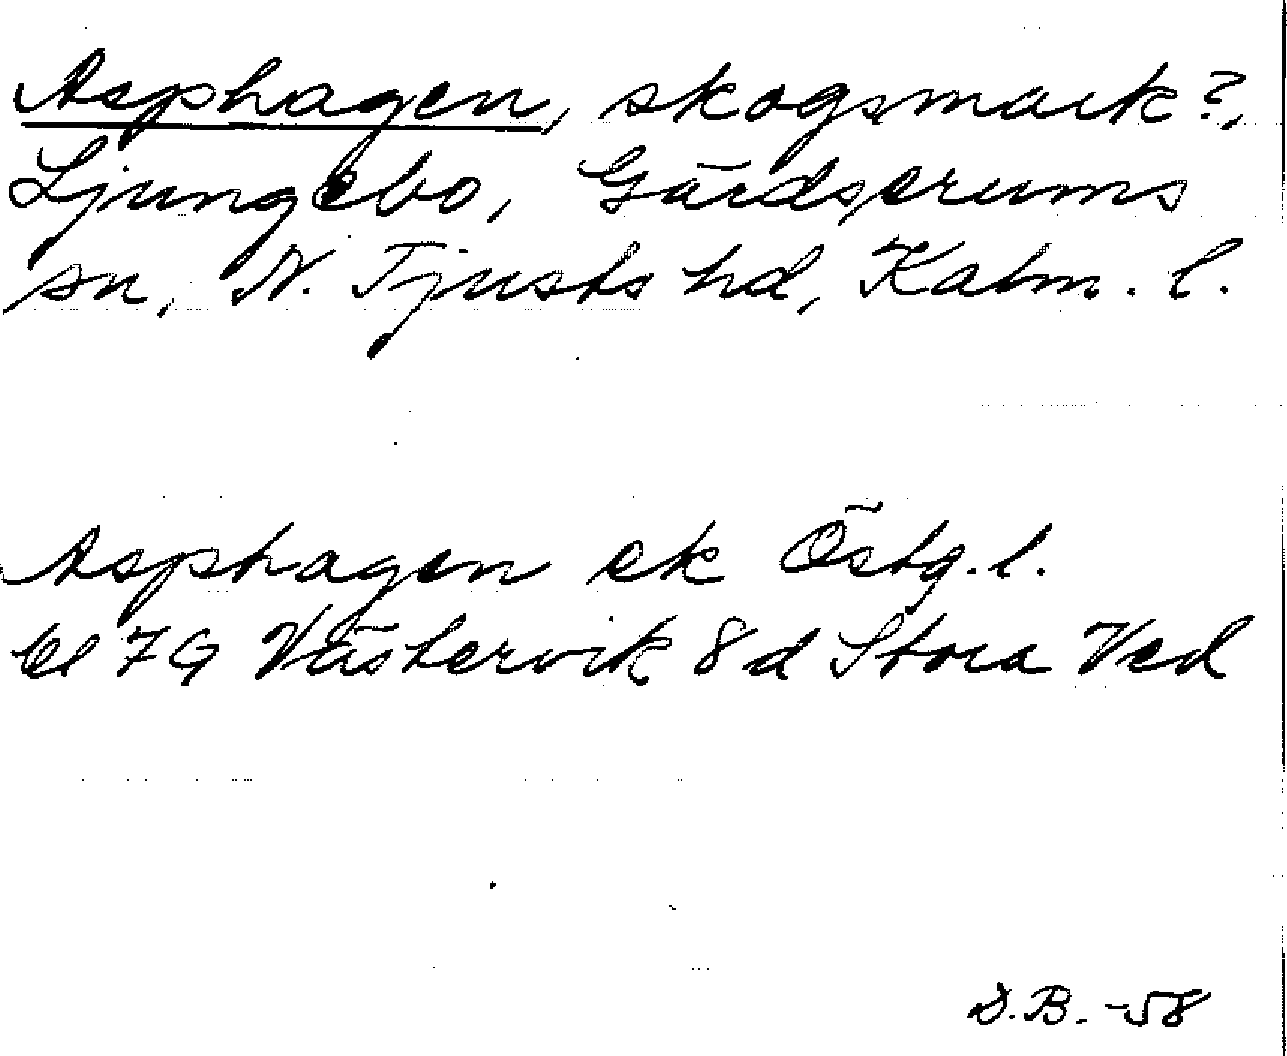 Asphagen, skogsmark?,
Ljungebo, Gärdserums
sn, N. Tjusts hd, Kalm. l.
Asphagen ek Östg. l.
bl 7G Västervik 8d Stora Ved
D.B. -58